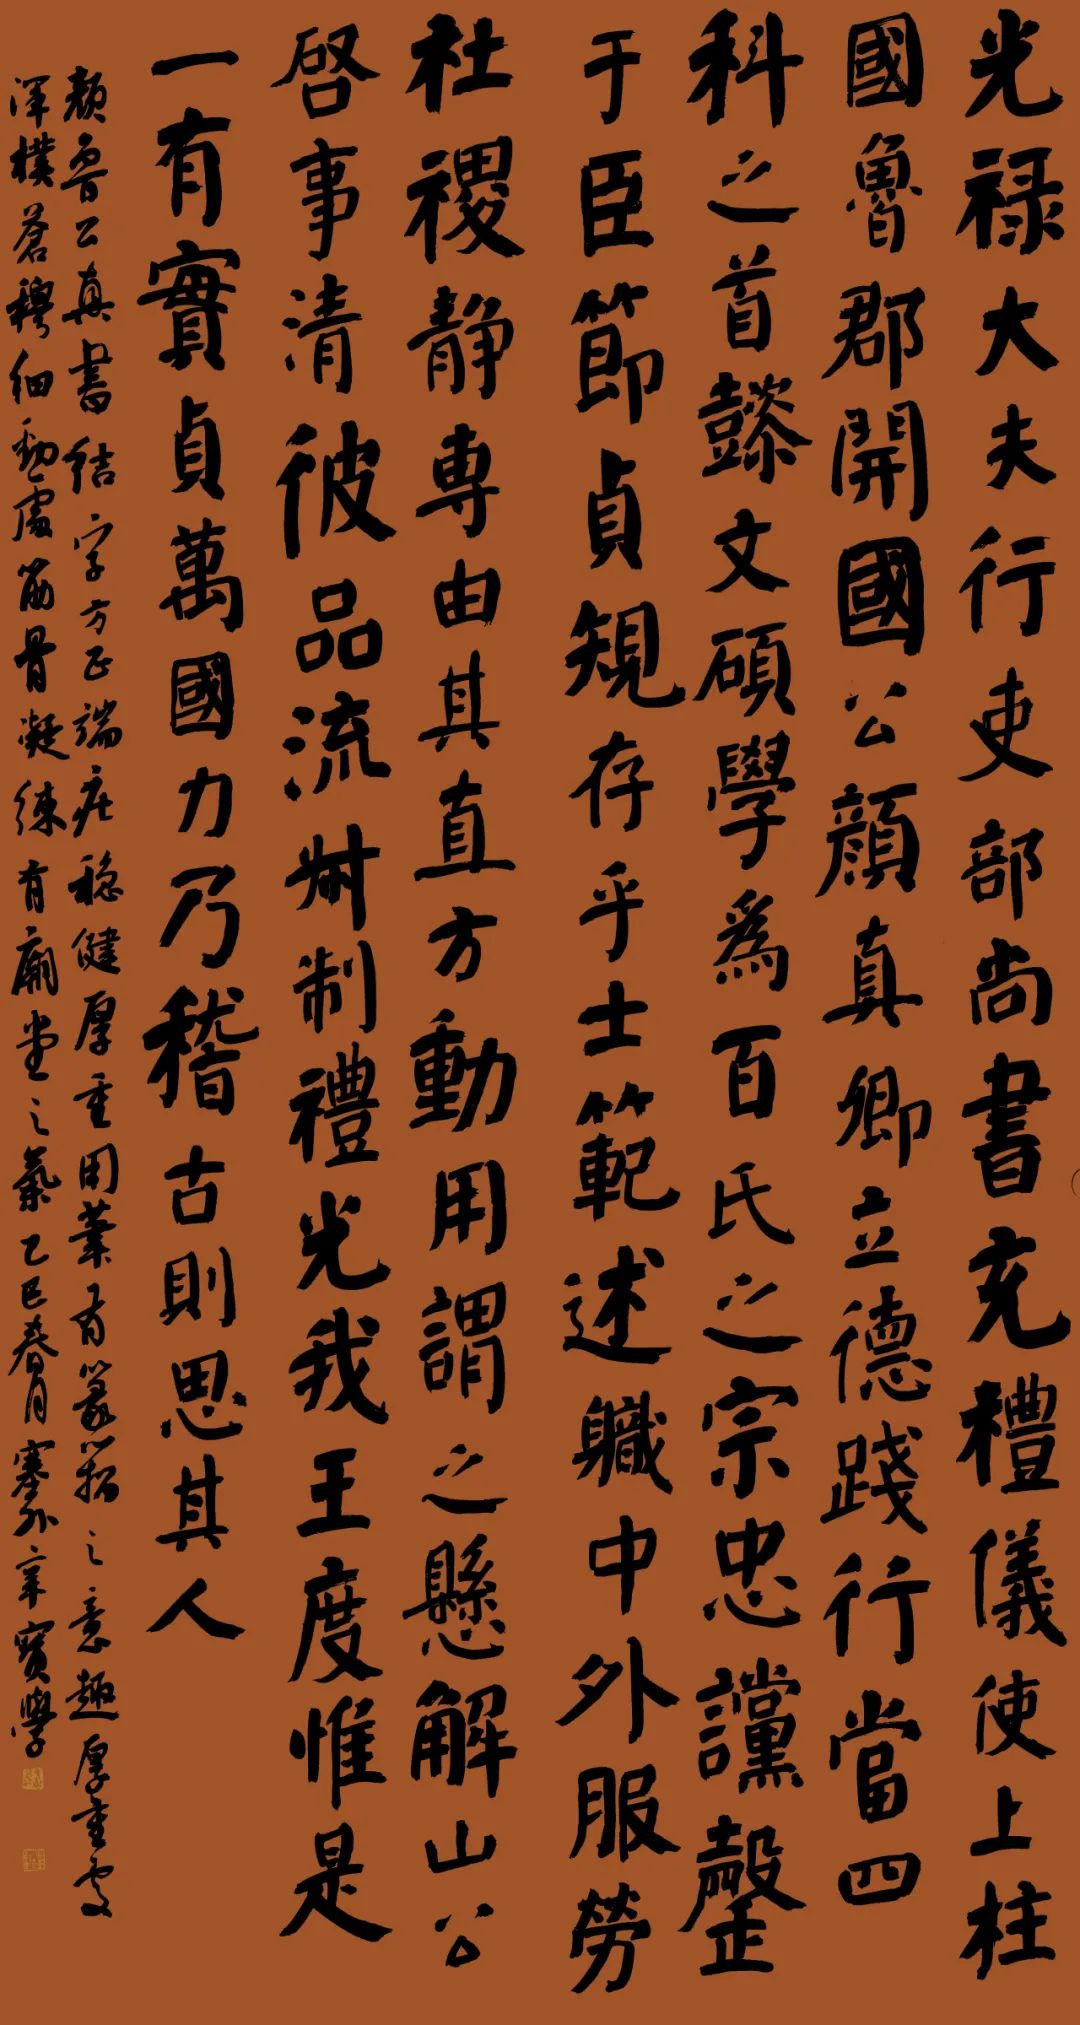 光禄大夫行吏部尚書充禮儀使上柱
國魯郡開國公顔真卿立德踐行當四
科之首懿文碩學爲百氏之宗忠讜罄
于臣節貞規存乎士範述職中外服勞
社稷静専由其直方動用謂之懸解山公
啓事清彼品流叔孫制禮光我王度惟是
一有實貞萬國力乃稽古則思其人
顔魯公真書結字方正端庄稳健厚重用筆有篆籀之意趣厚重處
渾樸蒼穆细勁處筋骨凝练有廟堂之氣乙巳春月塞外辛寳學